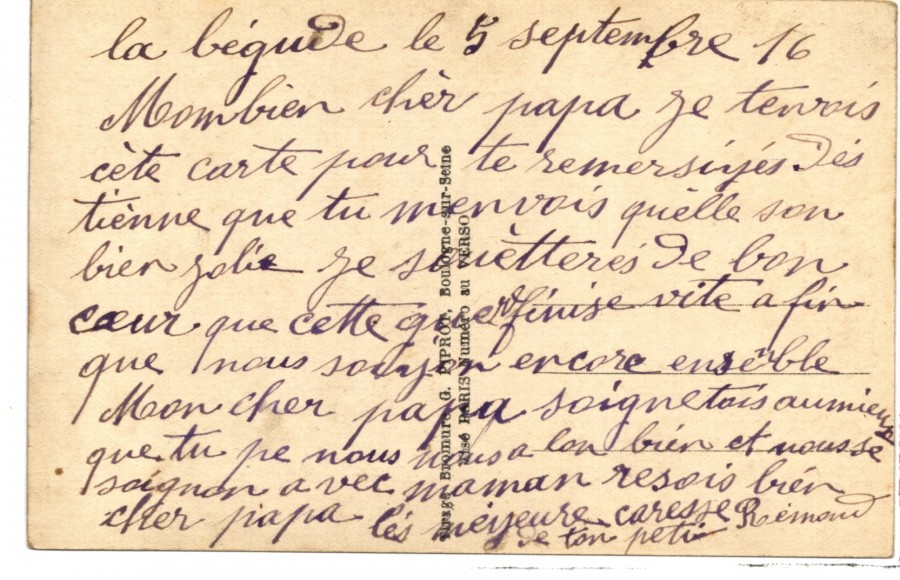 la bégude le 5 septembre 16
Mombien chèr papa je tenvois
cète carte pour te remersiyés dés
tiènne que tu menvois quèlle son
bien jolie je souètterés de bon
cœur que cette guèrr finise vite afin
que nous soyon encore ensèble
Mon cher papa soignetois aumieux
que tu pe nous nous alon bién et nousse
soignon avec maman resois bién
cher papa lés méyeure caresse
de ton petit Rémond
Tirage Bromure G. PIPROT, Boulogne-sur-Seine
Visé PARIS Numéro au VERSO